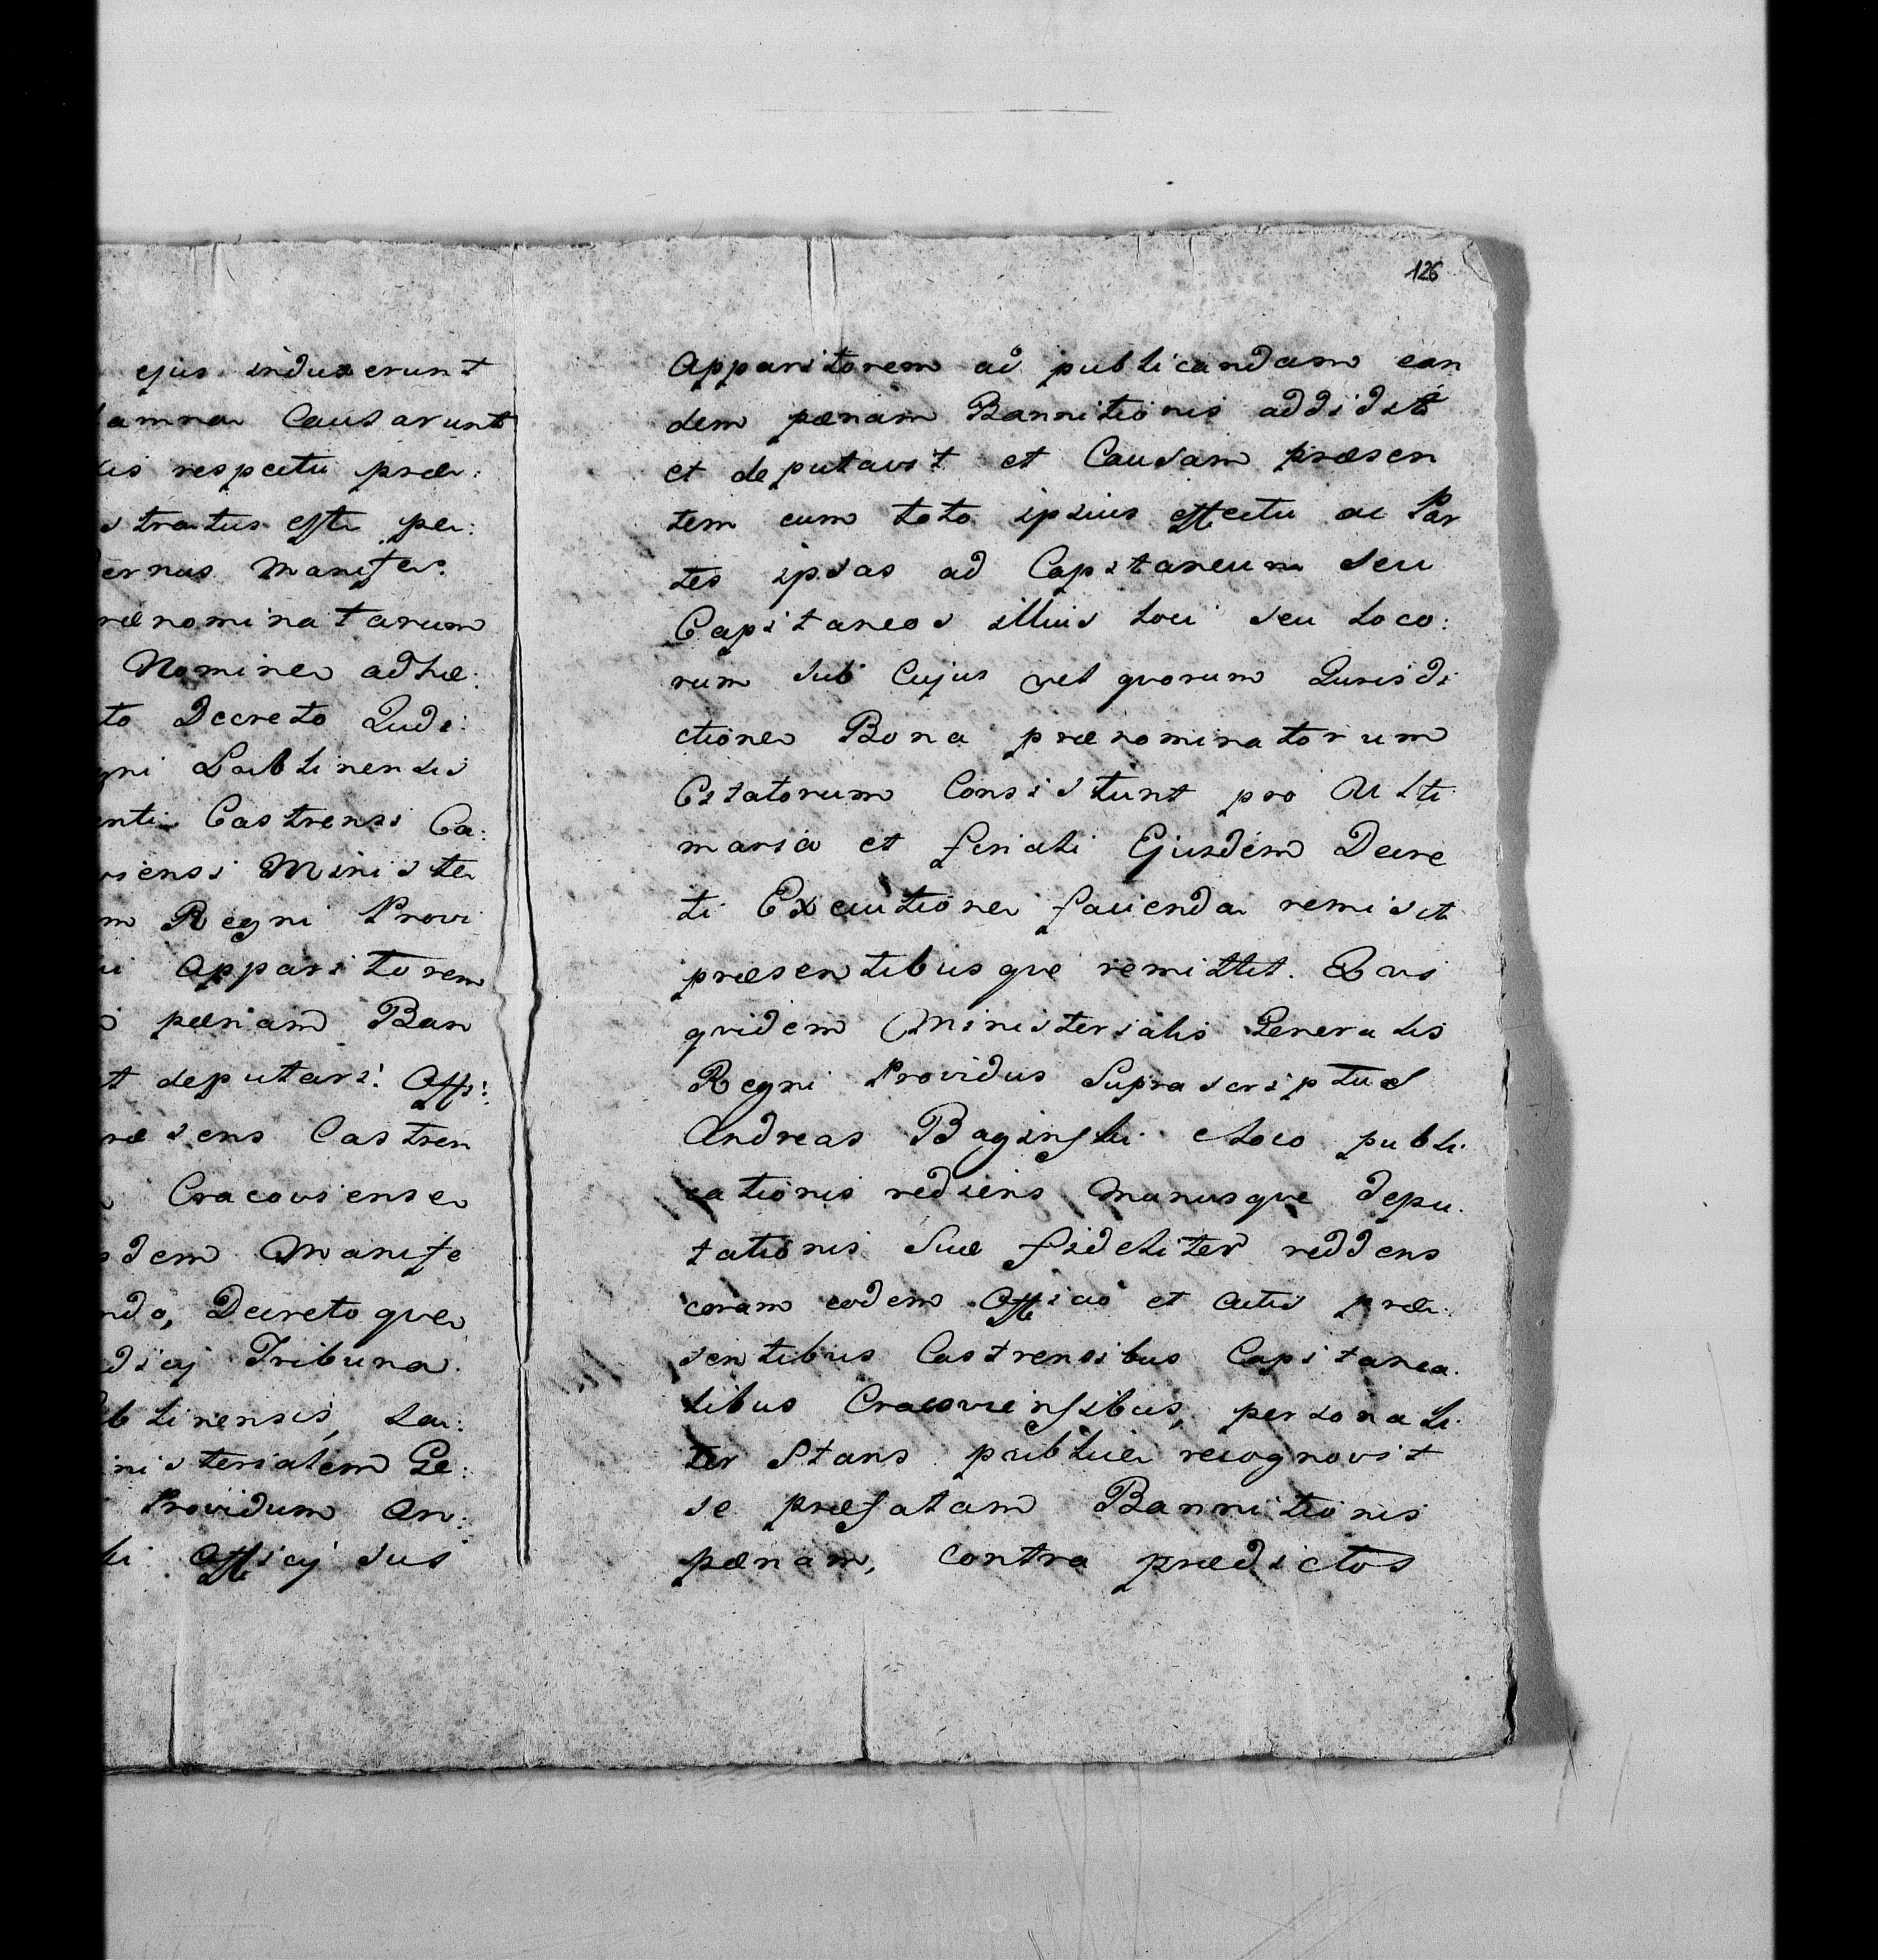 ejus induxerunt
amna Causarunt
is respectu præ:
stratus esse pe:
ernus Manifes:
rænominatarum
Nomine adhæ:
to Decreto Judi:
gni Lublinensis
enti Castrensi Ca:
viensi Ministe
m Regni Provi
ui Apparitorem
pænam Ban
t deputari: Offi:
ræsens Castren
Cracoviense
dem Manife
ndo, Decretoque
dicij Tribuna.
blinensis, La:
nisterialem Ge:
Providum An:
ki Officij sui
126
Apparitorem ad publicandam ean
dem pænam Bannitionis addidit
et deputavit et Causam præsen
tem cum toto ipsius effectu ac Par
tes ipsas ad Capitaneum seu
Capitaneos illius Loci seu Loco:
rum sub Cujus vel quorum Jurisdi
ctione Bona prænominatorum
Citatorum Consistunt pro Ulti
maria et finali Ejusdem Decre
ti Executione facienda remisit
præsentibusque remittit. Qui
quidem Ministerialis Generalis
Regni Providus Suprascriptus
Andreas Baginski eLoco publi.
cationis rediens Munusque depu.
tationis Suæ fideliter reddens
coram eodem Officio et Actis præ.
sentibus Castrensibus Capitanea.
libus Cracoviensibus, personali.
ter Stans publice recognovit
se præfatam Bannitionis
pænam, Contra prædictos